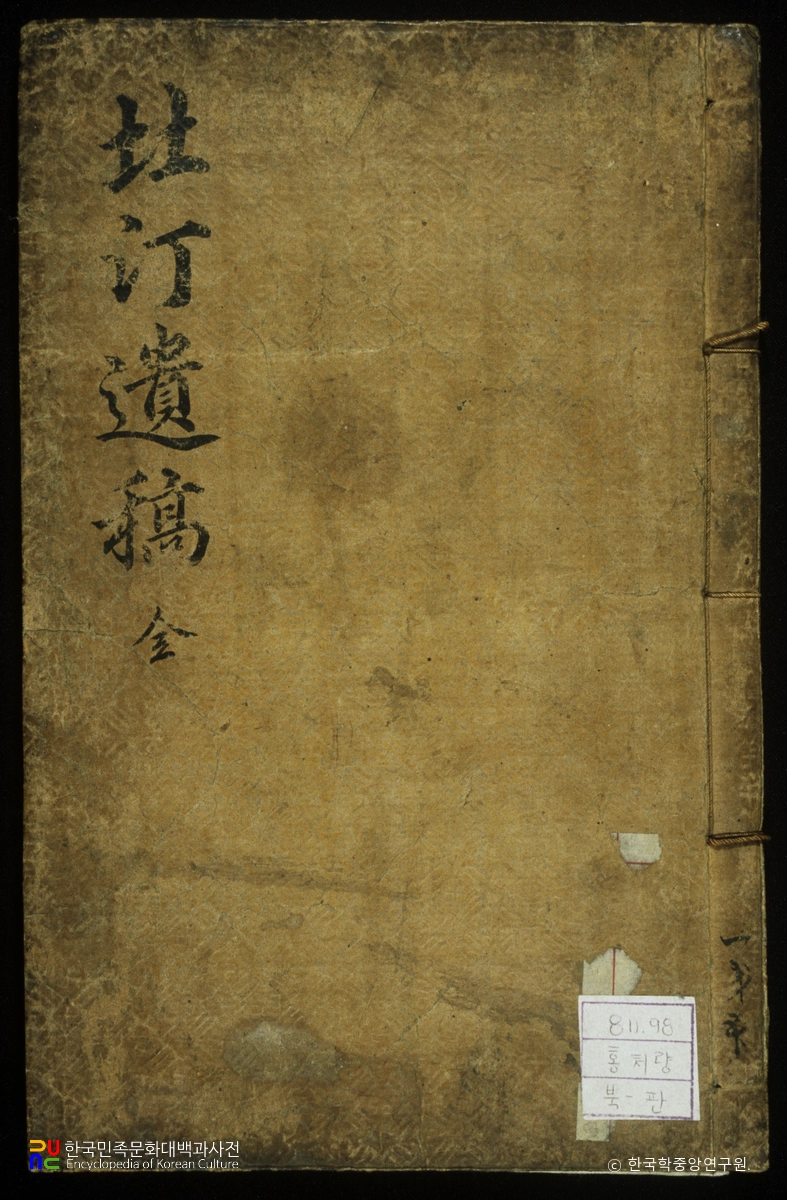 北汀遺稿 全
一
811.98
홍처량
북-판
한국민족문화대백과사전
Encyclopedia of Korean Culture
© 한국학중앙연구원